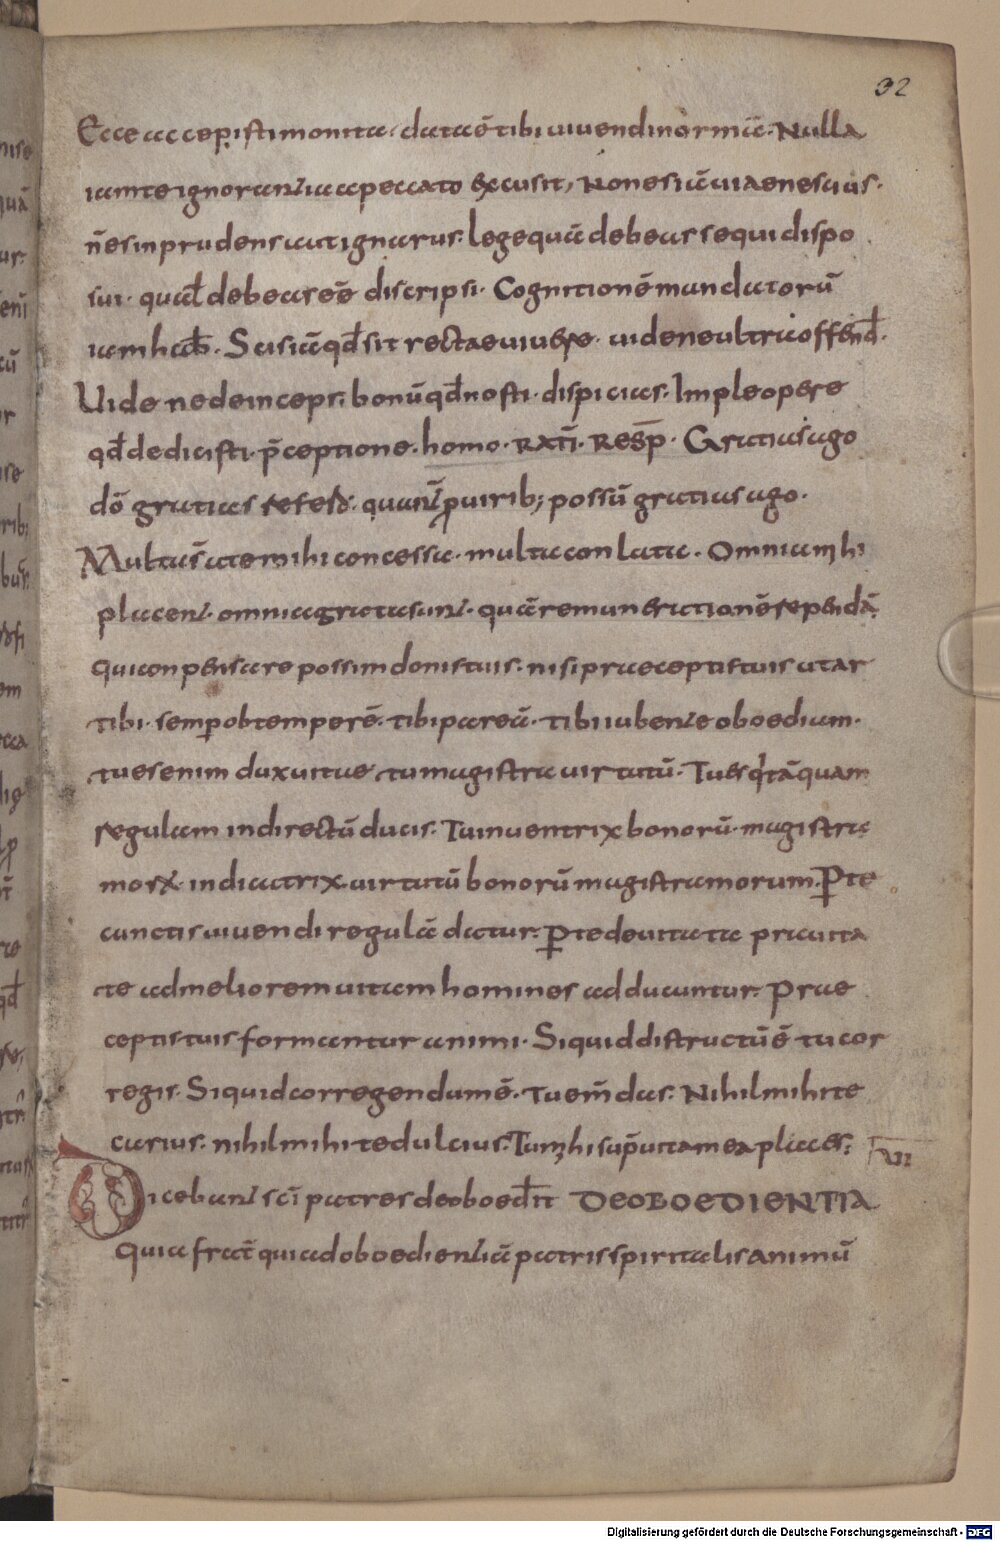 32
Ecce accepisti monita · data ē tibi vivendi norma · Nulla
iam te ignorantia a peccato excusit, Non es iā viae nescius ·
n̄ es inprudens aut ignarus · lege quā debear sequi dispo
sui · qual̄ debeas eē discripsi · Cognitionē mandatorū
iam hab̄ · Scis iā qd̄ sit rectae vivere · vide ne ultra offend̄ ·
Vide ne deinceps · bonū qd̄ nosti · dispicias · Imple opere
qd̄ dedicisti · p̄ceptione · homo · RATĪ · RESP̄ · Gratias ago
dō gratias refero · quant̄ p virib; possū gratias ago ·
Multa s̄ a te mihi concessa · multa conlata · Omnia mhi
placent · omnia grata sunt · quā remunerationē rependā
qui conpensare possim donis tuis · nisi praeceptis tuis utar
tibi · semp obtemperē · tibi pareā · tibi iubente oboediam ·
tu es enim dux vitae tu magistra virtutū · Tu es q tāquam
regulam in directū ducis · Tu inventrix bonorū magistra
morx · indicatrix virtutū bonorū magistra morum · P te
cunctis vivendi regulā datur · P te devitata pravita
te ad meliorem vitam homines adducuntur · Prae
ceptis tuis formantur animi · Siquid distructū ē tu cor
regis · Siquid corregendum ē · tu em̄das · Nihil mihi te
carius · nihil mihi te dulcius · Tu mhi sup vitam ea places ;
VI
Dicebant sc̄i patres de oboed̄it DE OBOEDIENTIA
Quia frat̄ qui ad oboedientiā patris spiritalis animū
Digitalisierung gefördert durch die Deutsche Forschungsgemeinschaft - DFG